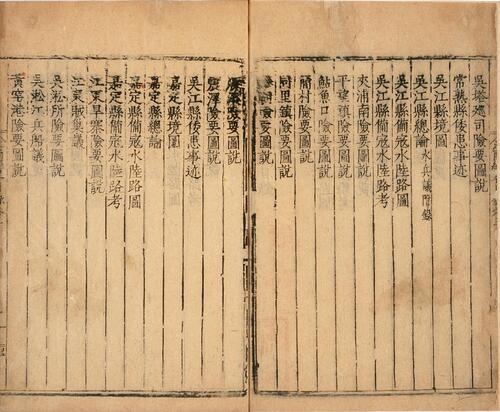 吳塔巡司險要圖說
常熟縣倭患事迹
吳江縣境圖
吳江縣總論水兵議附錄
吳江縣備寇水陸路圖
吳江縣備寇水陸路考
夾浦南險要圖說
平望鎮險要圖說
鮎魚口險要圖說
簡村險要圖說
同里鎮險要圖說
險要圖說
險要圖說
震澤險要圖說
吳江縣倭患事迹
嘉定縣境圖
嘉定縣總論
嘉定縣備寇水陸路圖
嘉定縣備寇水陸路考
江東旱寨險要圖說
江東敵集議
吳淞所險要圖說
吳淞江兵船議
黃窑港險要圖說